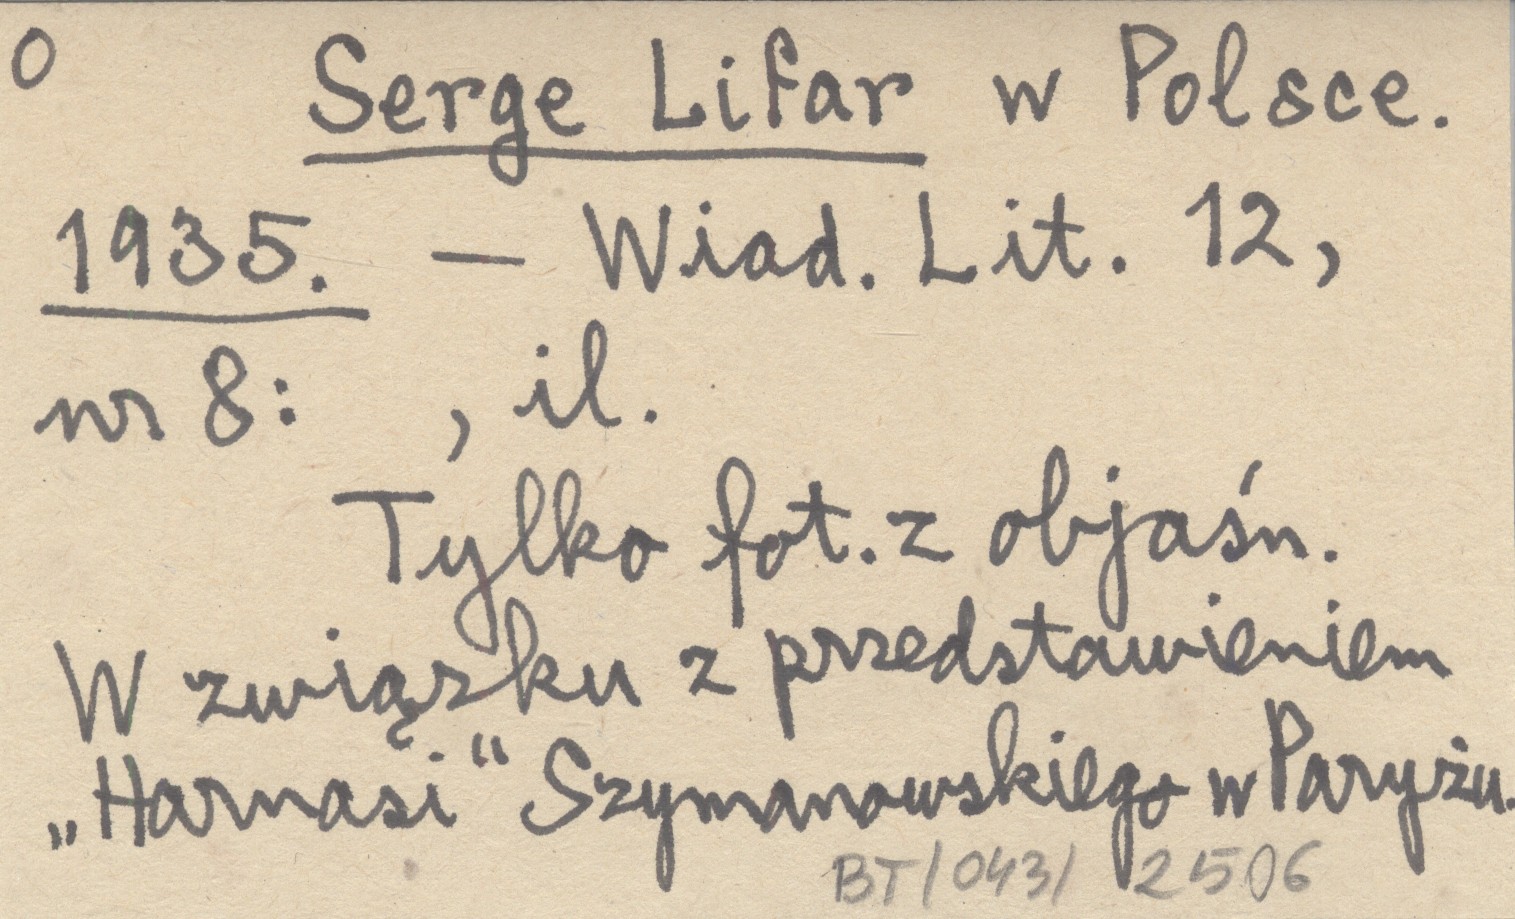 0 Serge Lifar w Polsce.
1935. — Wiad. Lit. 12,
nr 8: , il.
Tylko fot. z objaśn.
W związku z przedstawieniem
„Harnasi“ Szymanowskiego w Paryżu.
BT/043/ 2506